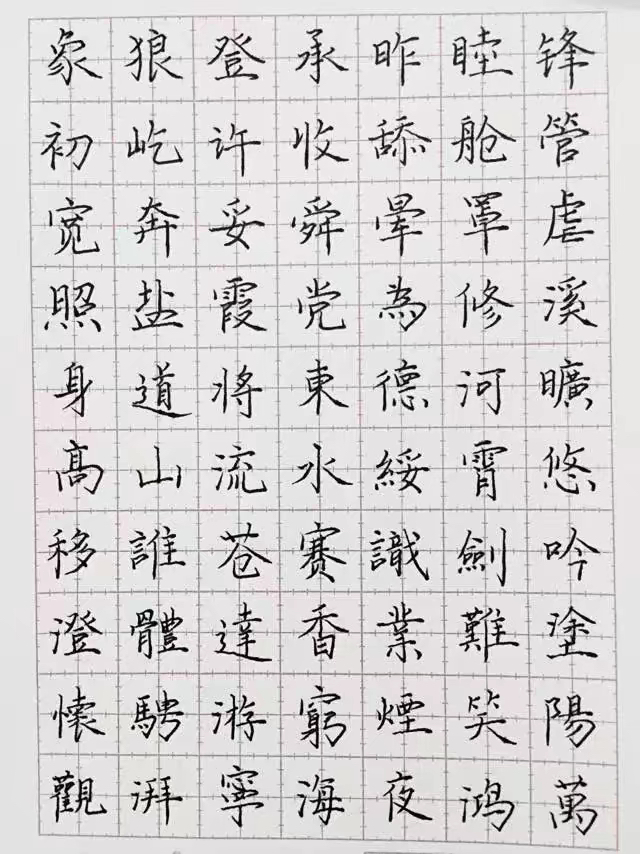 象狼登承昨睦锋
初屹许收舔舱管
宽奔妥舜晕罩虐
照盐霞党為修溪
身道将東德河曠
高山流水綏霄悠
移誰苍赛識劍吟
澄體達香業難塗
懷騁游窮煙笑陽
觀湃寧海夜鸿萬